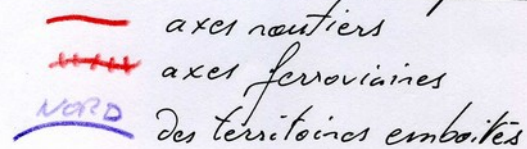 axes routiers
axes ferroviaires
NORD des territoires emboîtés